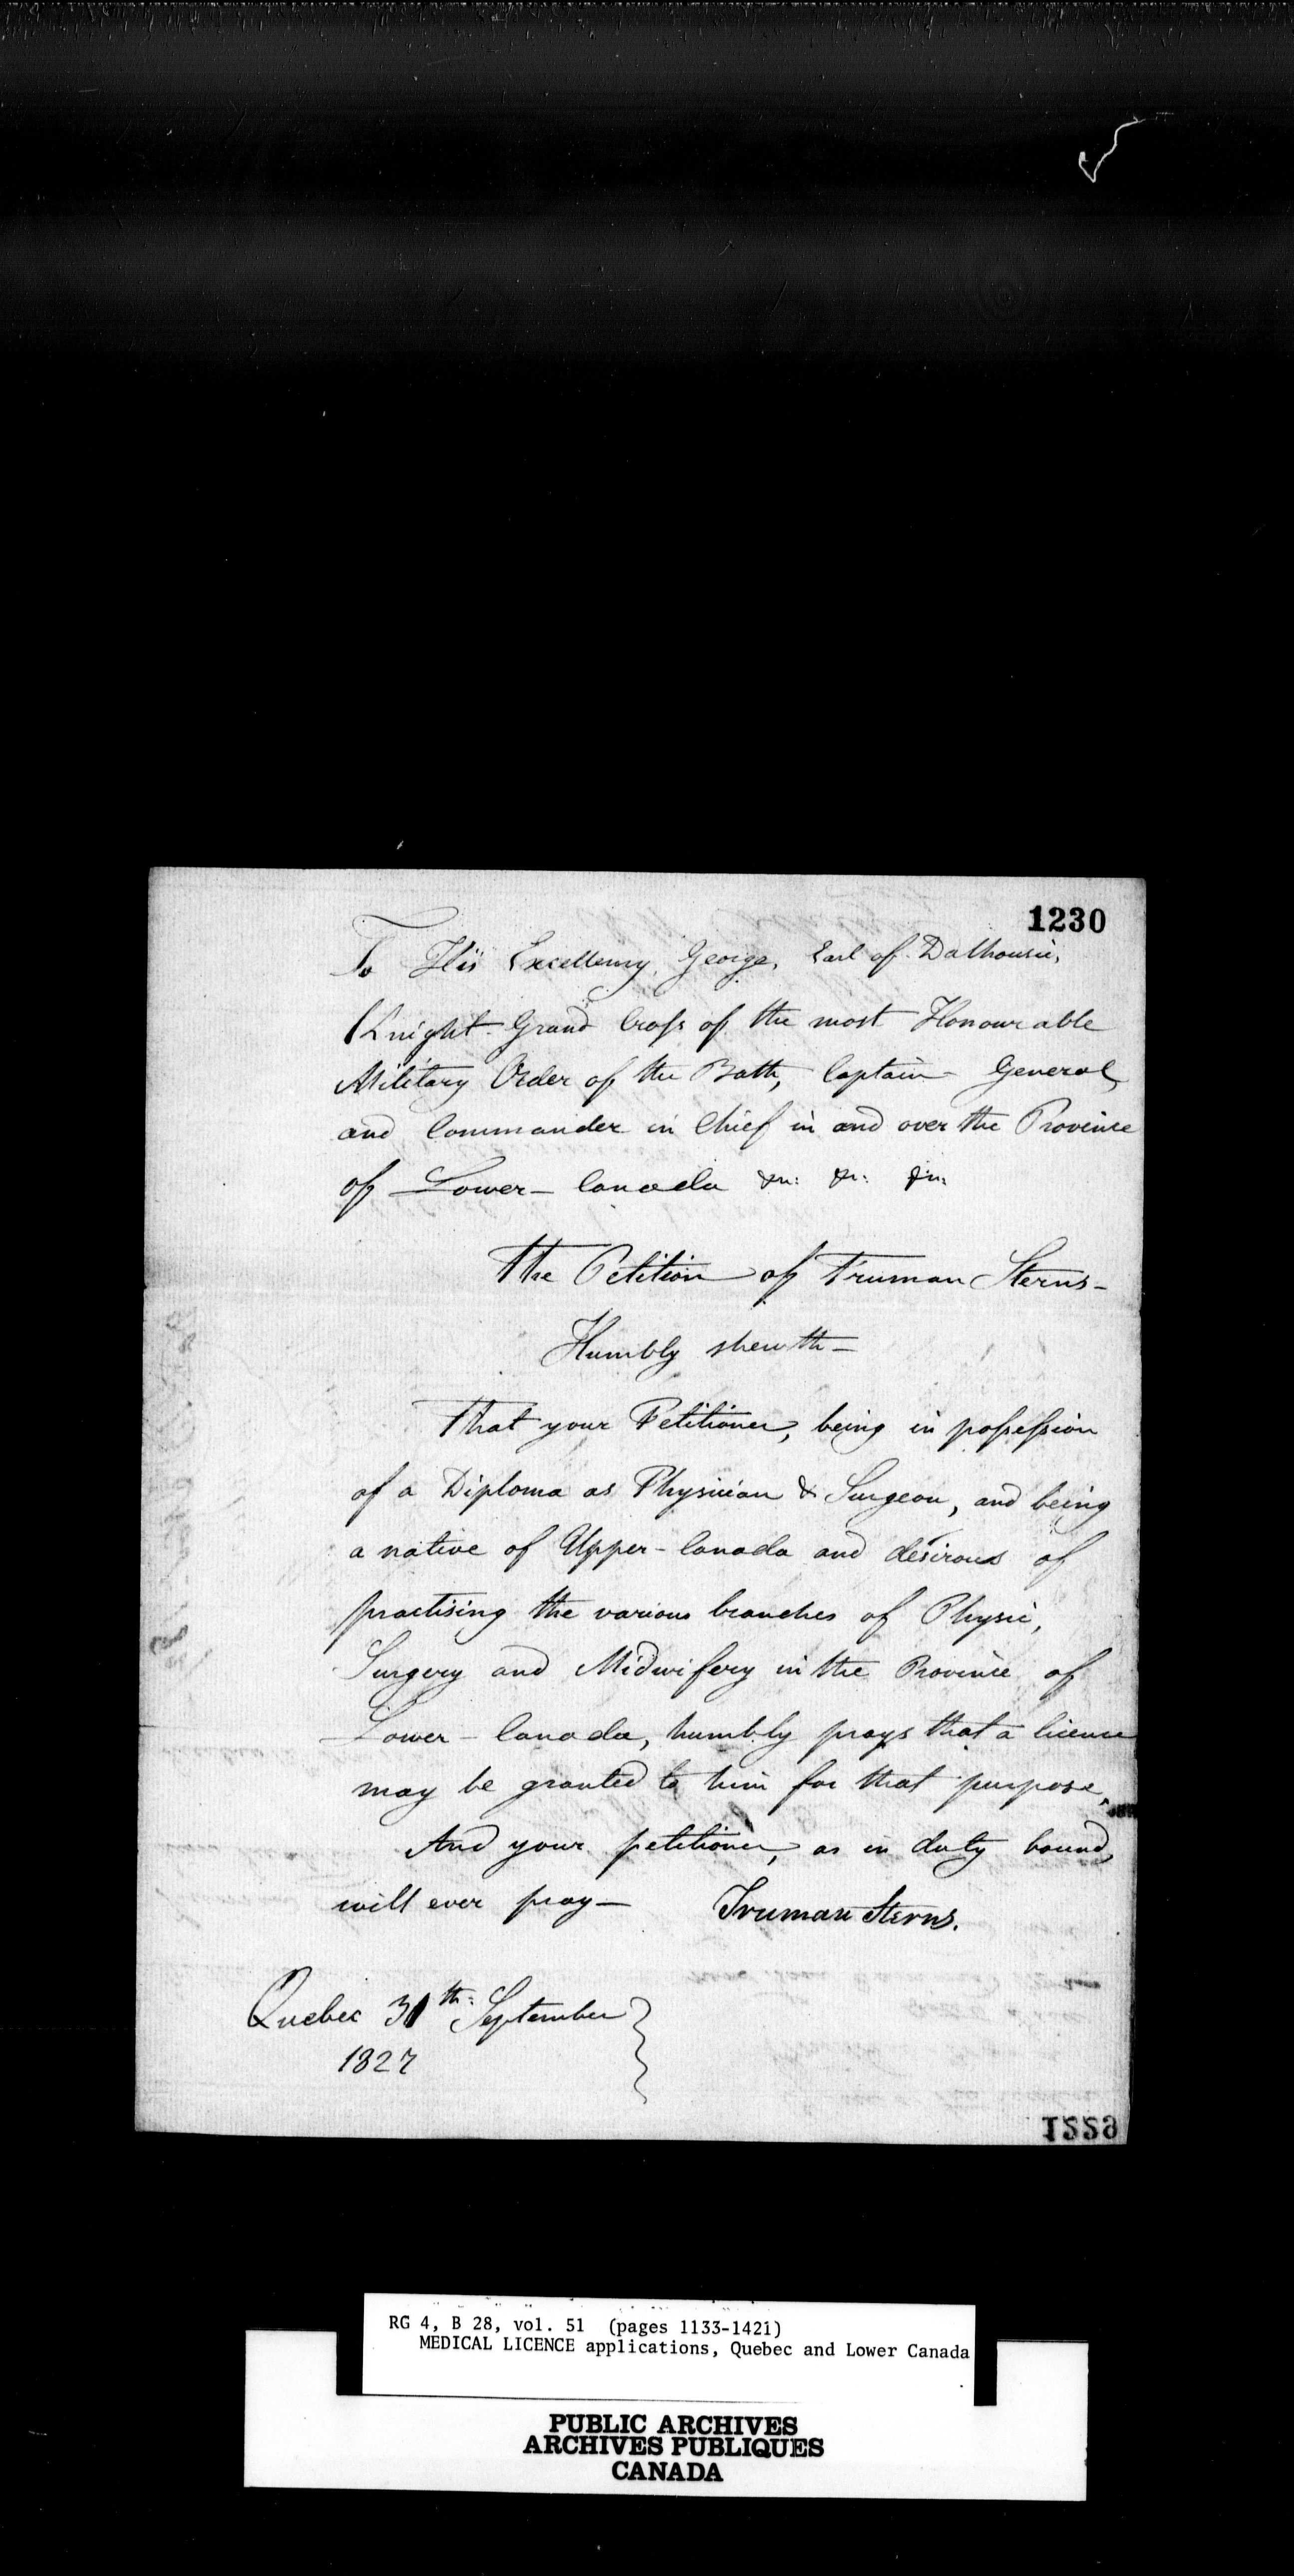 1230
To His Excellency, George, Earl of Dalhousie,
Knight Grand Cross of the most Honourable
Military Order of the Bath, Captain General
and Commander in Chief in and over the Province
of Lower-Canada &c: &c: &c:
The Petition of Truman Sterns-
Humbly shewth-
That your Petitioner, being in possession
of a Diploma as Physician & Surgeon, and being
a native of Upper-Canada and desirous of
practising the various branches of Physic,
Surgery and Midwifery in the Province of
Lower-Canada, humbly prays that a licence
may be granted to him for that purpose,
And your petitioner, as in duty bound,
will ever pray- Truman Sterns.
Quebec 31th: September
1827
1229
RG 4, B 28, vol. 51 (pages 1133-1421)
MEDICAL LICENCE applications, Quebec and Lower Canada
PUBLIC ARCHIVES
ARCHIVES PUBLIQUES
CANADA